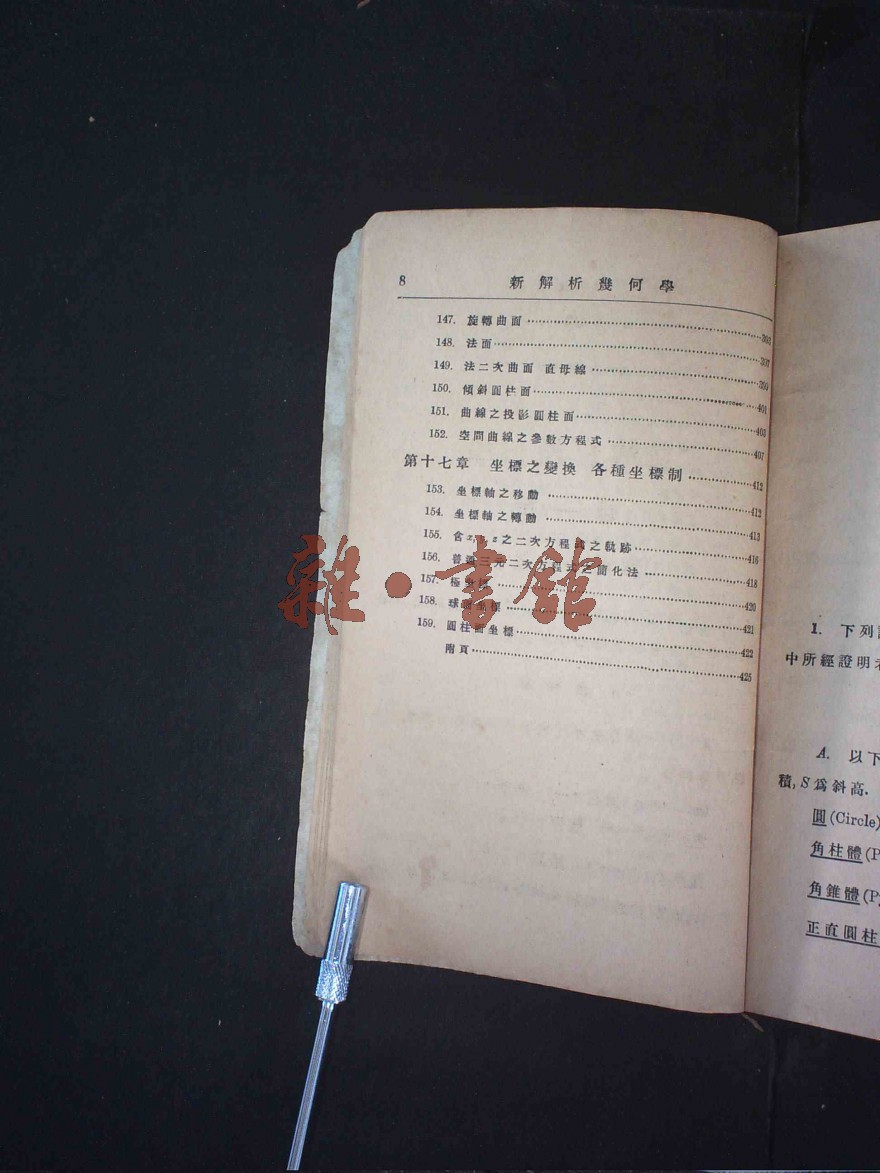 8 新解析幾何學
147. 旋轉曲面 393
148. 法面 397
149. 法二次曲面 直母線 399
150. 傾斜圓柱面 401
151. 曲線之投影圓柱面 403
152. 空間曲線之參數方程式 407
第十七章 坐標之變換 各種坐標制 412
153. 坐標軸之移動 412
154. 坐標軸之轉動 413
155. 含x, y, z之二次方程式之軌跡 416
156. 普通三元二次方程式之簡化法 418
157. 極坐標 420
158. 球面坐標 421
159. 圓柱面坐標 422
附頁 425
雜·書館
1. 下列
中所經證明
A. 以下
積, S爲斜高.
圓 (Circle)
角柱體 (P
角錐體 (P
正直圓柱